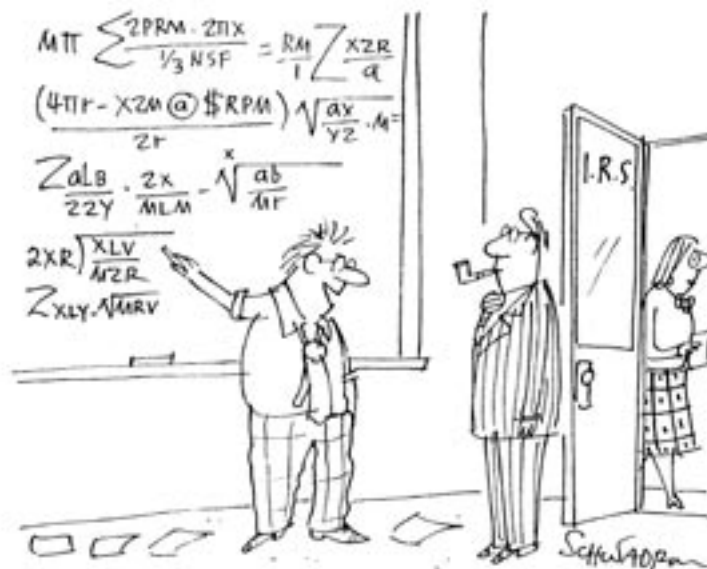 Mπ ∑ 2PRM · 2πx / 1/3 NSF = RM / 1 ∑ XZR / a
(4πr - XZM @ $RPM / 2r) √ ax / YZ · M =
∑ aLB / 22Y · 2X / MLM - ˣ√ ab / Mr
2XR) XLV / MZR
∑ XLY · √MRV
I.R.S.
SCHWADRON